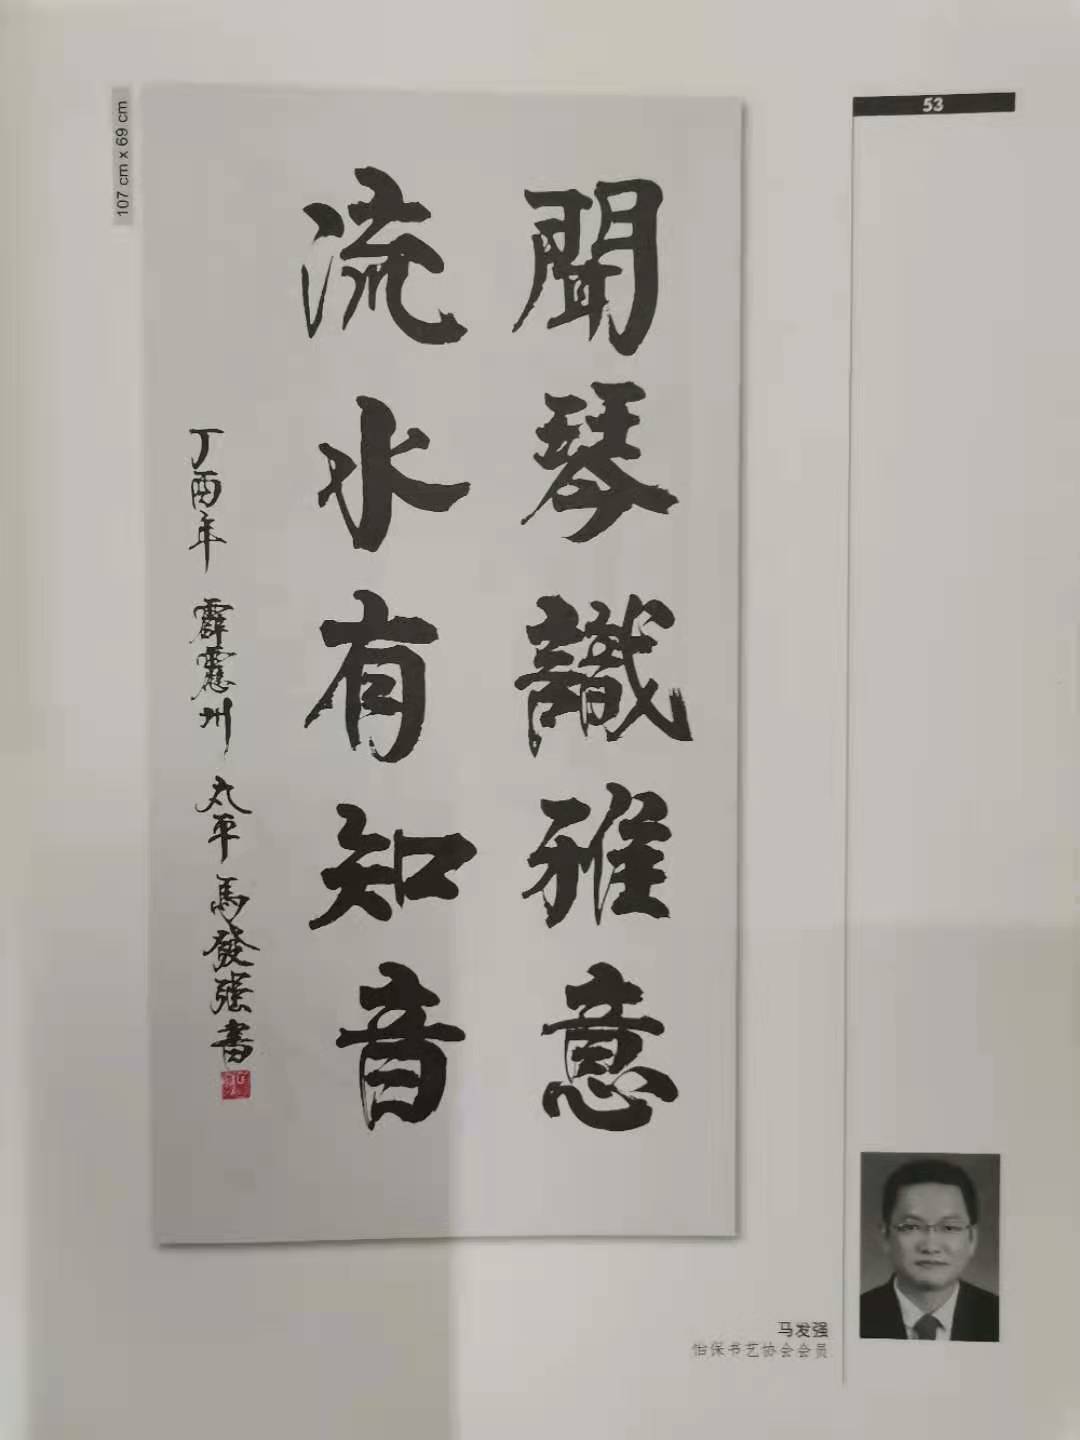 53
107 cm x 69 cm
聞琴識雅意
流水有知音
丁酉年 霹靂州 太平 馬發强書
马发强
怡保书艺协会会员